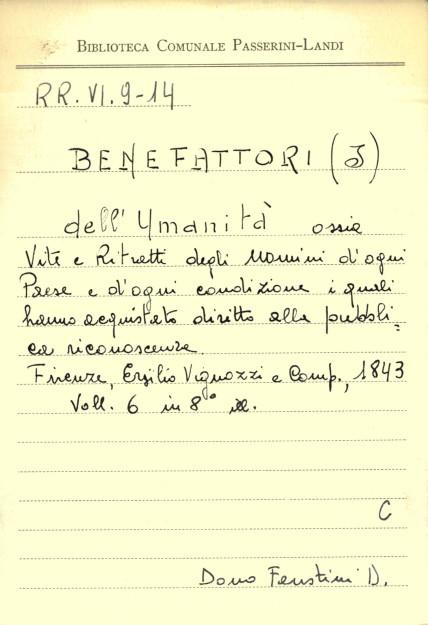 BIBLIOTECA COMUNALE PASSERINI-LANDI
RR. VI. 9-14
BENEFATTORI (I)
dell'Umanità ossia
Vite e Ritratti degli Uomini d'ogni
Paese e d'ogni condizione i quali
hanno acquistato diritto alla pubbli=
ca riconoscenza.
Firenze, Ersilio Vignozzi e Comp., 1843
Voll. 6 in 8° ill.
C
Dono Faustini D.